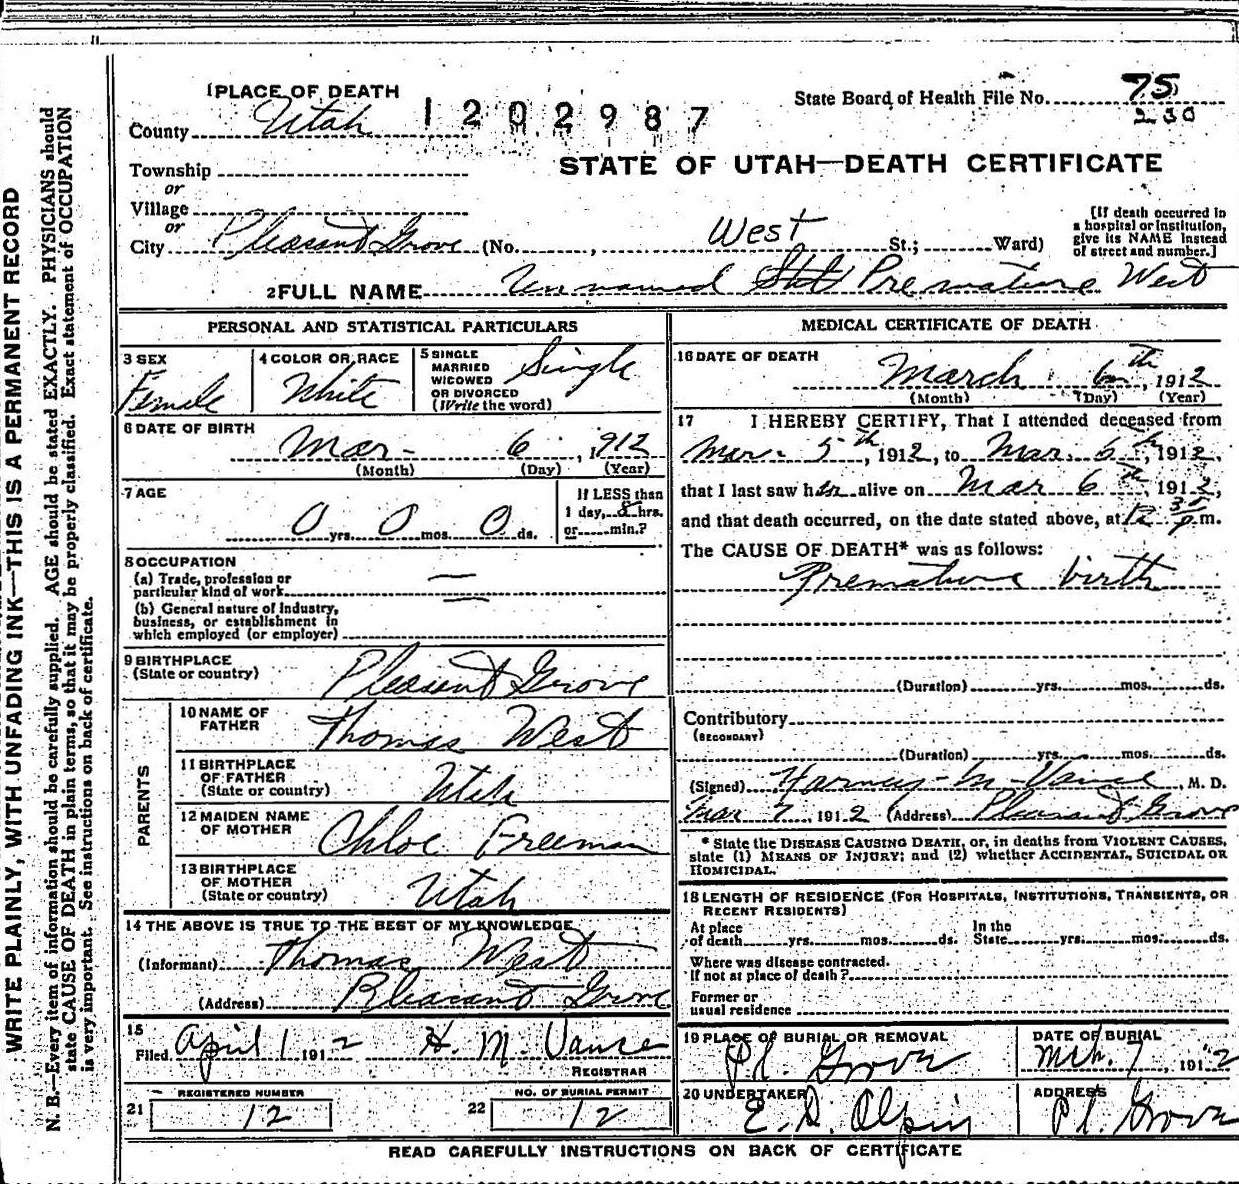 WRITE PLAINLY, WITH UNFADING INK—THIS IS A PERMANENT RECORD
N. B.—Every item of information should be carefully supplied. AGE should be stated EXACTLY. PHYSICIANS should
state CAUSE OF DEATH in plain terms, so that it may be properly classified. Exact statement of OCCUPATION
is very important. See instructions on back of certificate.
1 PLACE OF DEATH
County Utah
1202987
State Board of Health File No. 75
230
STATE OF UTAH—DEATH CERTIFICATE
Township
or
Village
or
City Pleasant Grove (No. , West St.; Ward)
[If death occurred in
a hospital or institution,
give its NAME instead
of street and number.]
2 FULL NAME Unnamed Premature West
PERSONAL AND STATISTICAL PARTICULARS
3 SEX
Female
4 COLOR OR RACE
White
5 SINGLE
MARRIED
WIDOWED
OR DIVORCED
(Write the word)
Single
6 DATE OF BIRTH
Mar- 6, 1912
(Month) (Day) (Year)
7 AGE
0 yrs. 0 mos. 0 ds.
If LESS than
1 day, 8 hrs.
or min.?
8 OCCUPATION
(a) Trade, profession or
particular kind of work —
(b) General nature of industry, —
business, or establishment in
which employed (or employer)
9 BIRTHPLACE
(State or country) Pleasant Grove
PARENTS
10 NAME OF
FATHER Thomas West
11 BIRTHPLACE
OF FATHER
(State or country) Utah
12 MAIDEN NAME
OF MOTHER Chloe Freeman
13 BIRTHPLACE
OF MOTHER
(State or country) Utah
14 THE ABOVE IS TRUE TO THE BEST OF MY KNOWLEDGE
(Informant) Thomas West
(Address) Pleasant Grove
15
Filed April 1 1912 H. M. Vance
REGISTRAR
REGISTERED NUMBER
21 12
NO. OF BURIAL PERMIT
22 12
MEDICAL CERTIFICATE OF DEATH
16 DATE OF DEATH
March 6th, 1912
(Month) (Day) (Year)
17 I HEREBY CERTIFY, That I attended deceased from
Mar. 5th, 1912, to Mar. 6th, 1912,
that I last saw her alive on Mar 6th, 1912,
and that death occurred, on the date stated above, at 12 30 p.m.
The CAUSE OF DEATH* was as follows:
Premature birth
(Duration) yrs. mos. ds.
Contributory
(SECONDARY)
(Duration) yrs. mos. ds.
(Signed) Harvey M Vance, M. D.
Mar 7, 1912 (Address) Pleasant Grove
* State the DISEASE CAUSING DEATH, or, in deaths from VIOLENT CAUSES,
state (1) MEANS OF INJURY; and (2) whether ACCIDENTAL, SUICIDAL OR
HOMICIDAL.
18 LENGTH OF RESIDENCE (FOR HOSPITALS, INSTITUTIONS, TRANSIENTS, OR
RECENT RESIDENTS)
At place
of death yrs. mos. ds.
In the
State yrs. mos. ds.
Where was disease contracted.
If not at place of death?
Former or
usual residence
19 PLACE OF BURIAL OR REMOVAL
Pl. Grove
DATE OF BURIAL
Mch. 7, 1912
20 UNDERTAKER
E. D. Olpin
ADDRESS
Pl. Grove
READ CAREFULLY INSTRUCTIONS ON BACK OF CERTIFICATE